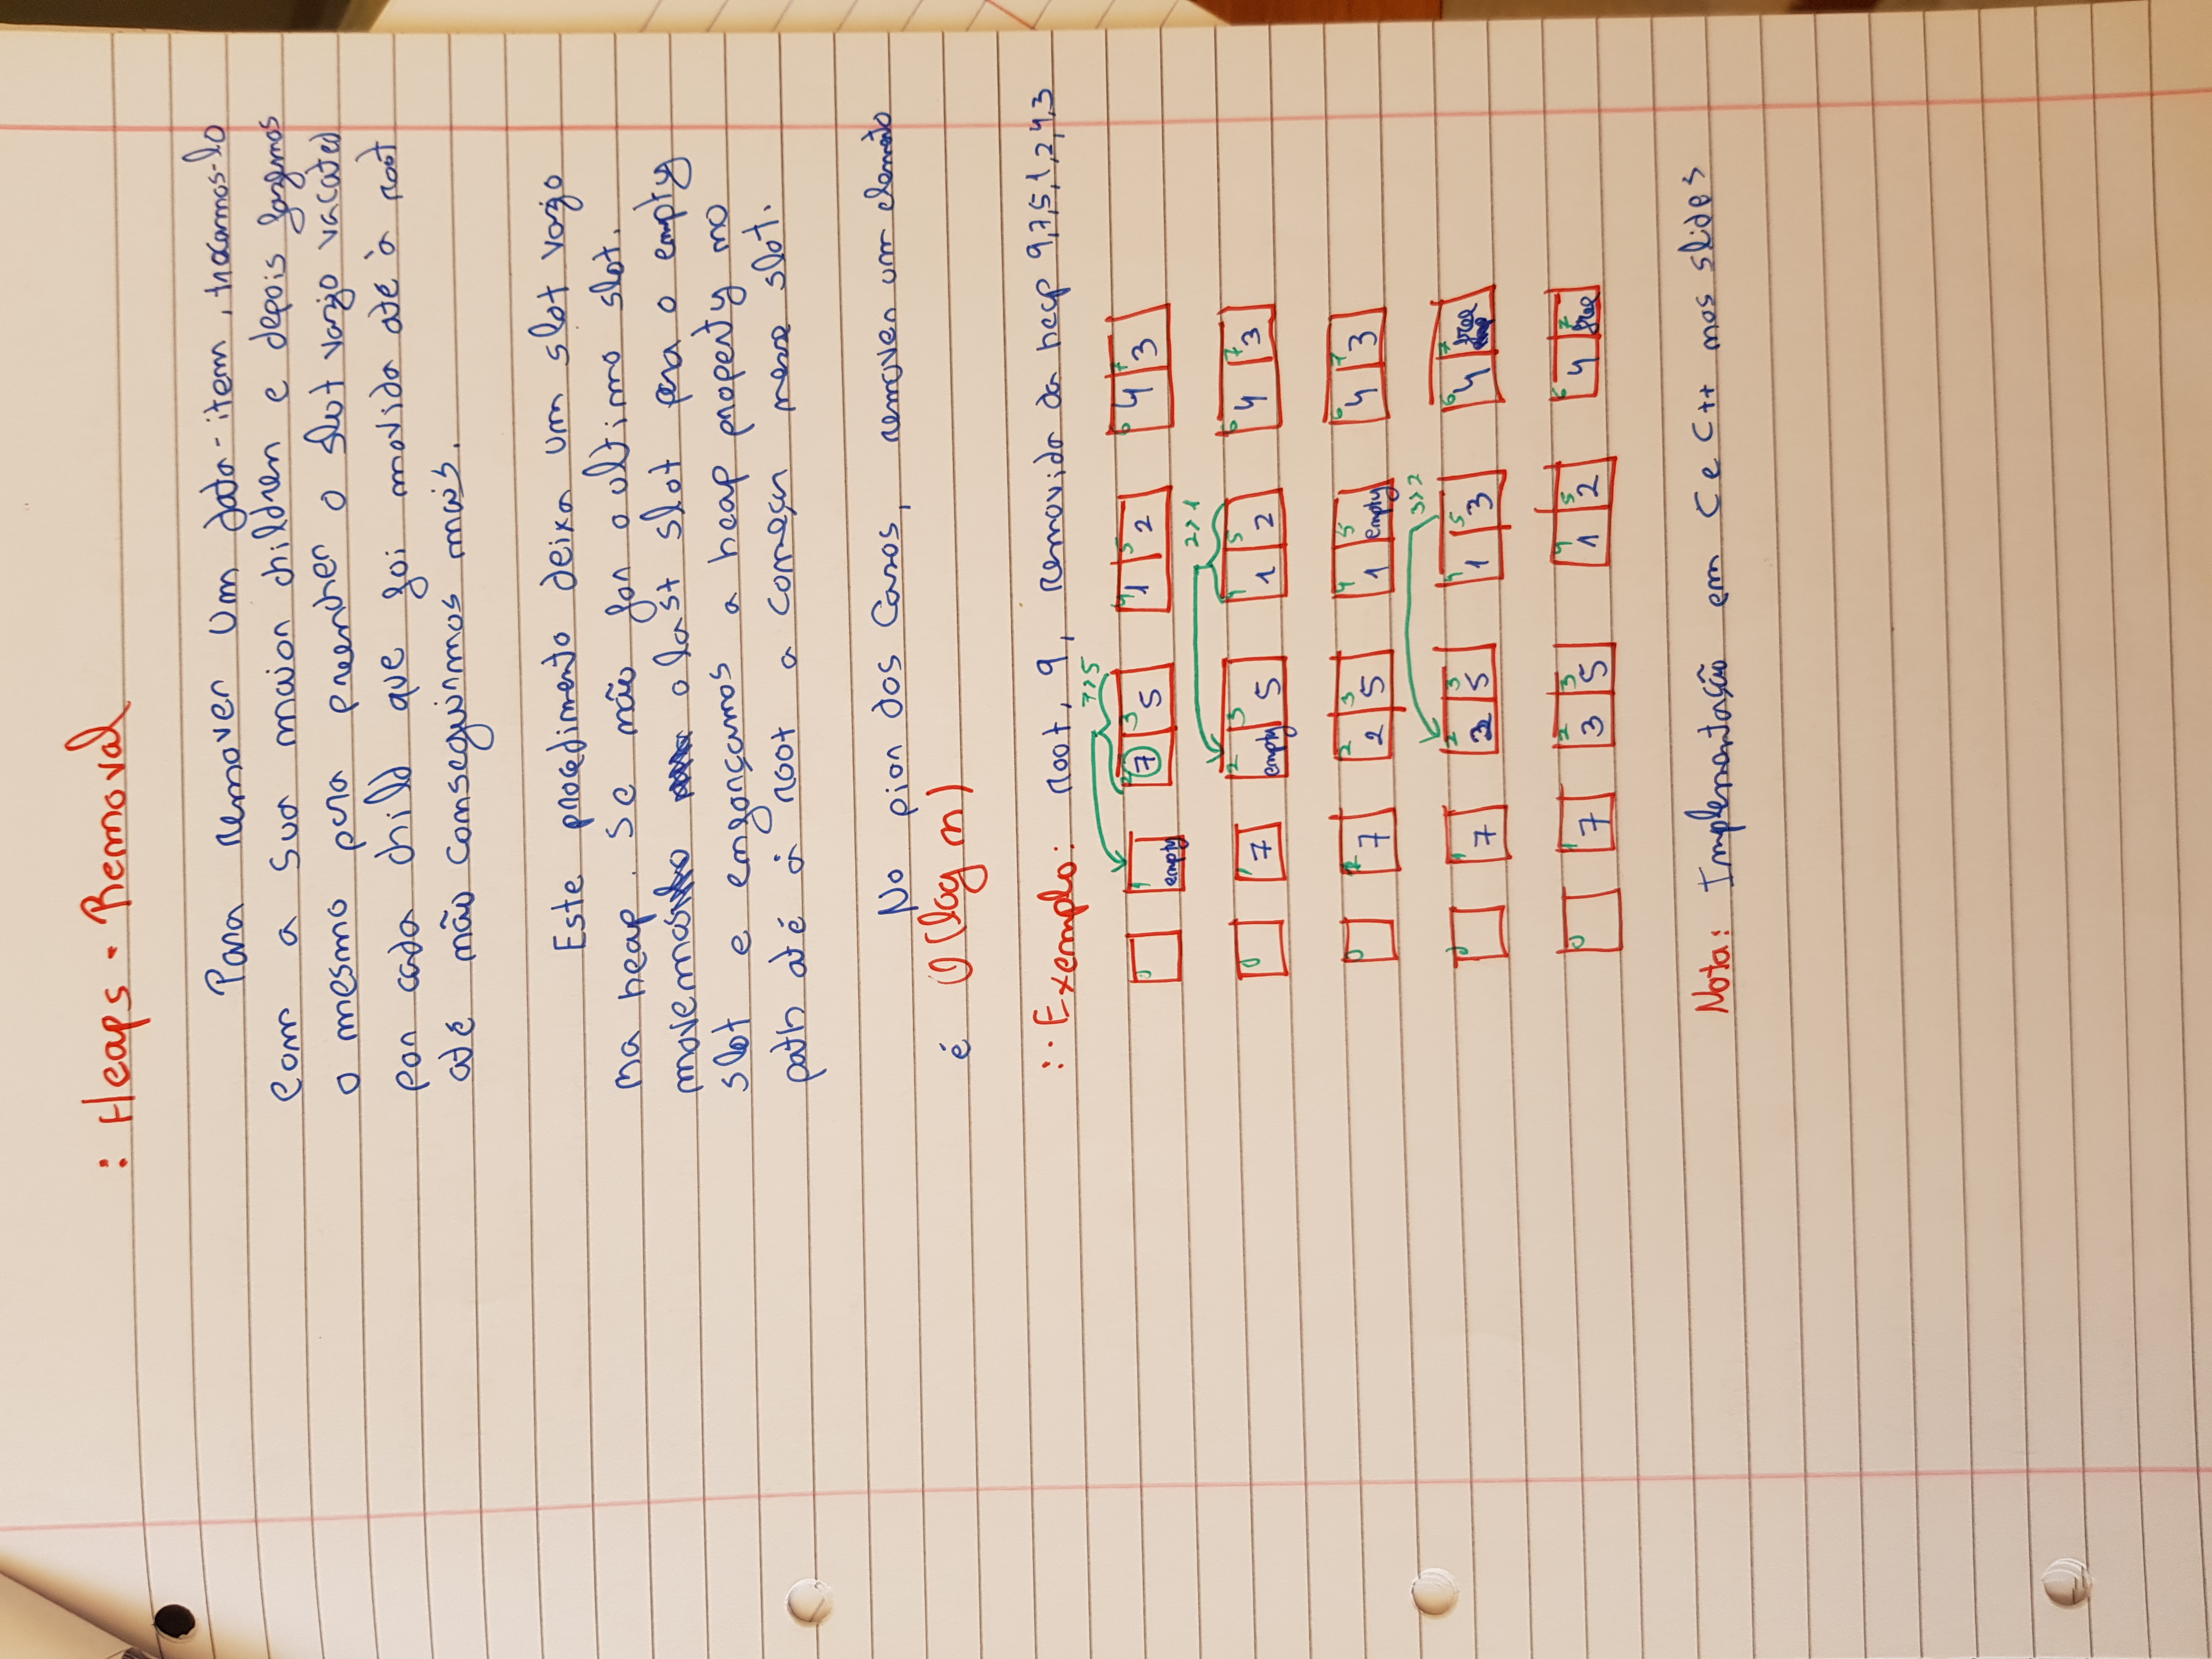 : Heaps - Removal
Para remover um data-item, trocamos-lo
com a sua maior children e depois fazemos
o mesmo para preencher o slot vazio vacated
por cada child que foi movida até à root
até não conseguirmos mais.
Este procedimento deixa um slot vazio
na heap. Se não for o ultimo slot.
movemos o last slot para o empty
slot e enforçamos a heap property no
path até à root a começar nesse slot.
No pior dos Casos, remover um elemento
é O(log n)
:· Exemplo: root, 9, removida da heap 9,7,5,1,2,4,3
7>5
0 1 empty 2 7 3 5 4 1 5 2 6 4 7 3
2>1
0 1 7 2 empty 3 5 4 1 5 2 6 4 7 3
0 1 7 2 2 3 5 4 1 5 empty 6 4 7 3
3>2
0 1 7 2 2 3 5 4 1 5 3 6 4 7 free
0 1 7 2 3 3 5 4 1 5 2 6 4 7 free
Nota: Implementação em C e C++ nos slides